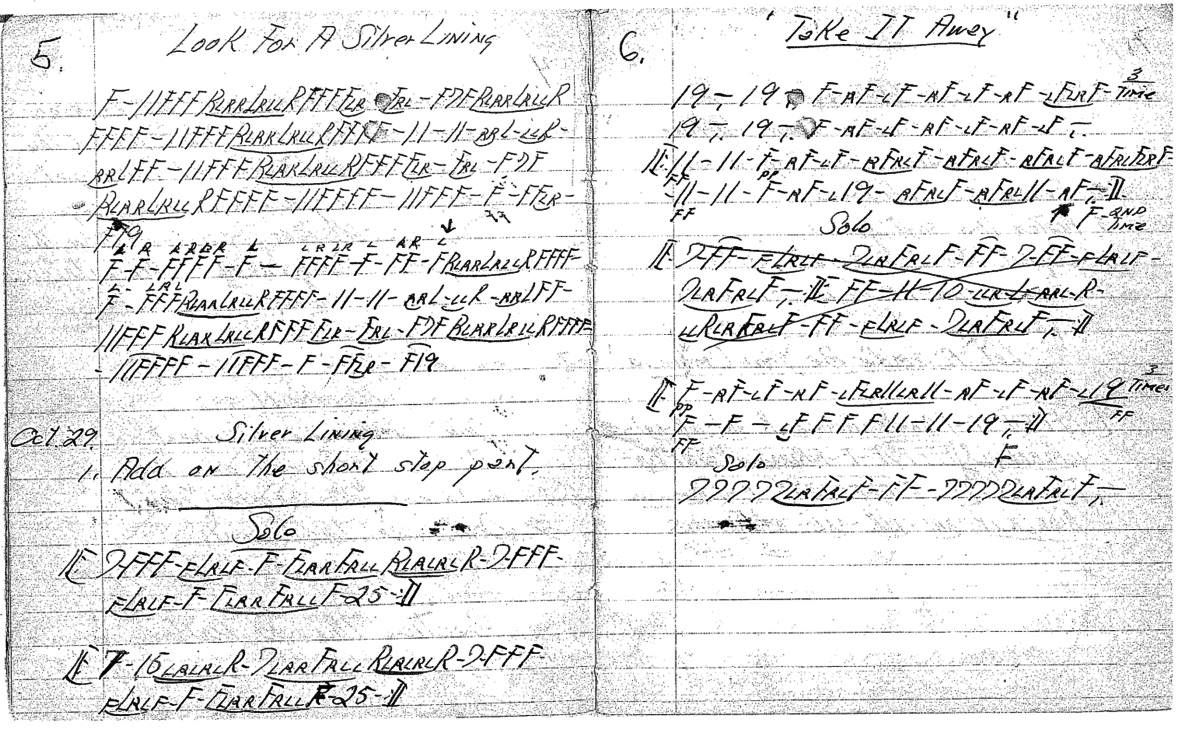 5.
Look For A Silver Lining
F-11FFFRLRRLRLLRFFFFFLR-FRL-F7FRLRRLRLLR
FFFF-11FFFRLRRLRLLRFFFFF-11-11-RRL-LLR-
RRLFF-11FFFRLRRLRLLRFFFFFLR-FRL-F7F
RLRRLRLLRFFFFF-11FFFFF-11FFFF-F-FFLR-
F19
F-F-FFFFF-F-FFFF-F-FF-FRLRRLRLLRFFFF-
F-FFFRLRRLRLLRFFFF-11-11-RRL-LLR-RRLFF-
11FFFRLRRLRLLRFFFFFLR-FRL-F7FRLRRLRLLRFFFF
-11FFFFF-11FFFF-F-FFLR-F19
Oct. 29.
Silver Lining
1. Add on the short stop part.
Solo
7-FFF-FLRLF-F-FLRRFRLLRLRLRLR-7-FFF-
FLRLF-F-FLRRFRLLF-25-:||
7-15LRLRLR-7LRRFRLLRLRLRLR-7-FFF-
FLRLF-F-FLRRFRLLF-25-:||
6.
"Take It Away"
19-, 19-, F-RF-LF-RF-LF-RF-LFLRF- 3 Time
19-, 19-, F-RF-LF-RF-LF-RF-LF-,
11-11-F-RF-LF-RFRLF-RFRLF-RFRLF-RFRLFLRF
FF
PP
-11-11-F-RF-L19-RFRLF-RFRL11-RF-,:||
FF
F-2ND Time
Solo
7-FF-FLRLF-7LRFRLF-FF-7-FF-FLRLF-
7LRFRLF-, FF-11-10-LLR-L-RRL-R-
LLRLRFRLF-FF-FLRLF-7LRFRLF-,:||
F-RF-LF-RF-LFLR11LR11-RF-LF-RF-L19 3 Times
PP
FF
F-F-LFFFF11-11-19-,:||
FF
F
Solo
77777LRFRLF-FF-77777LRFRLF-,